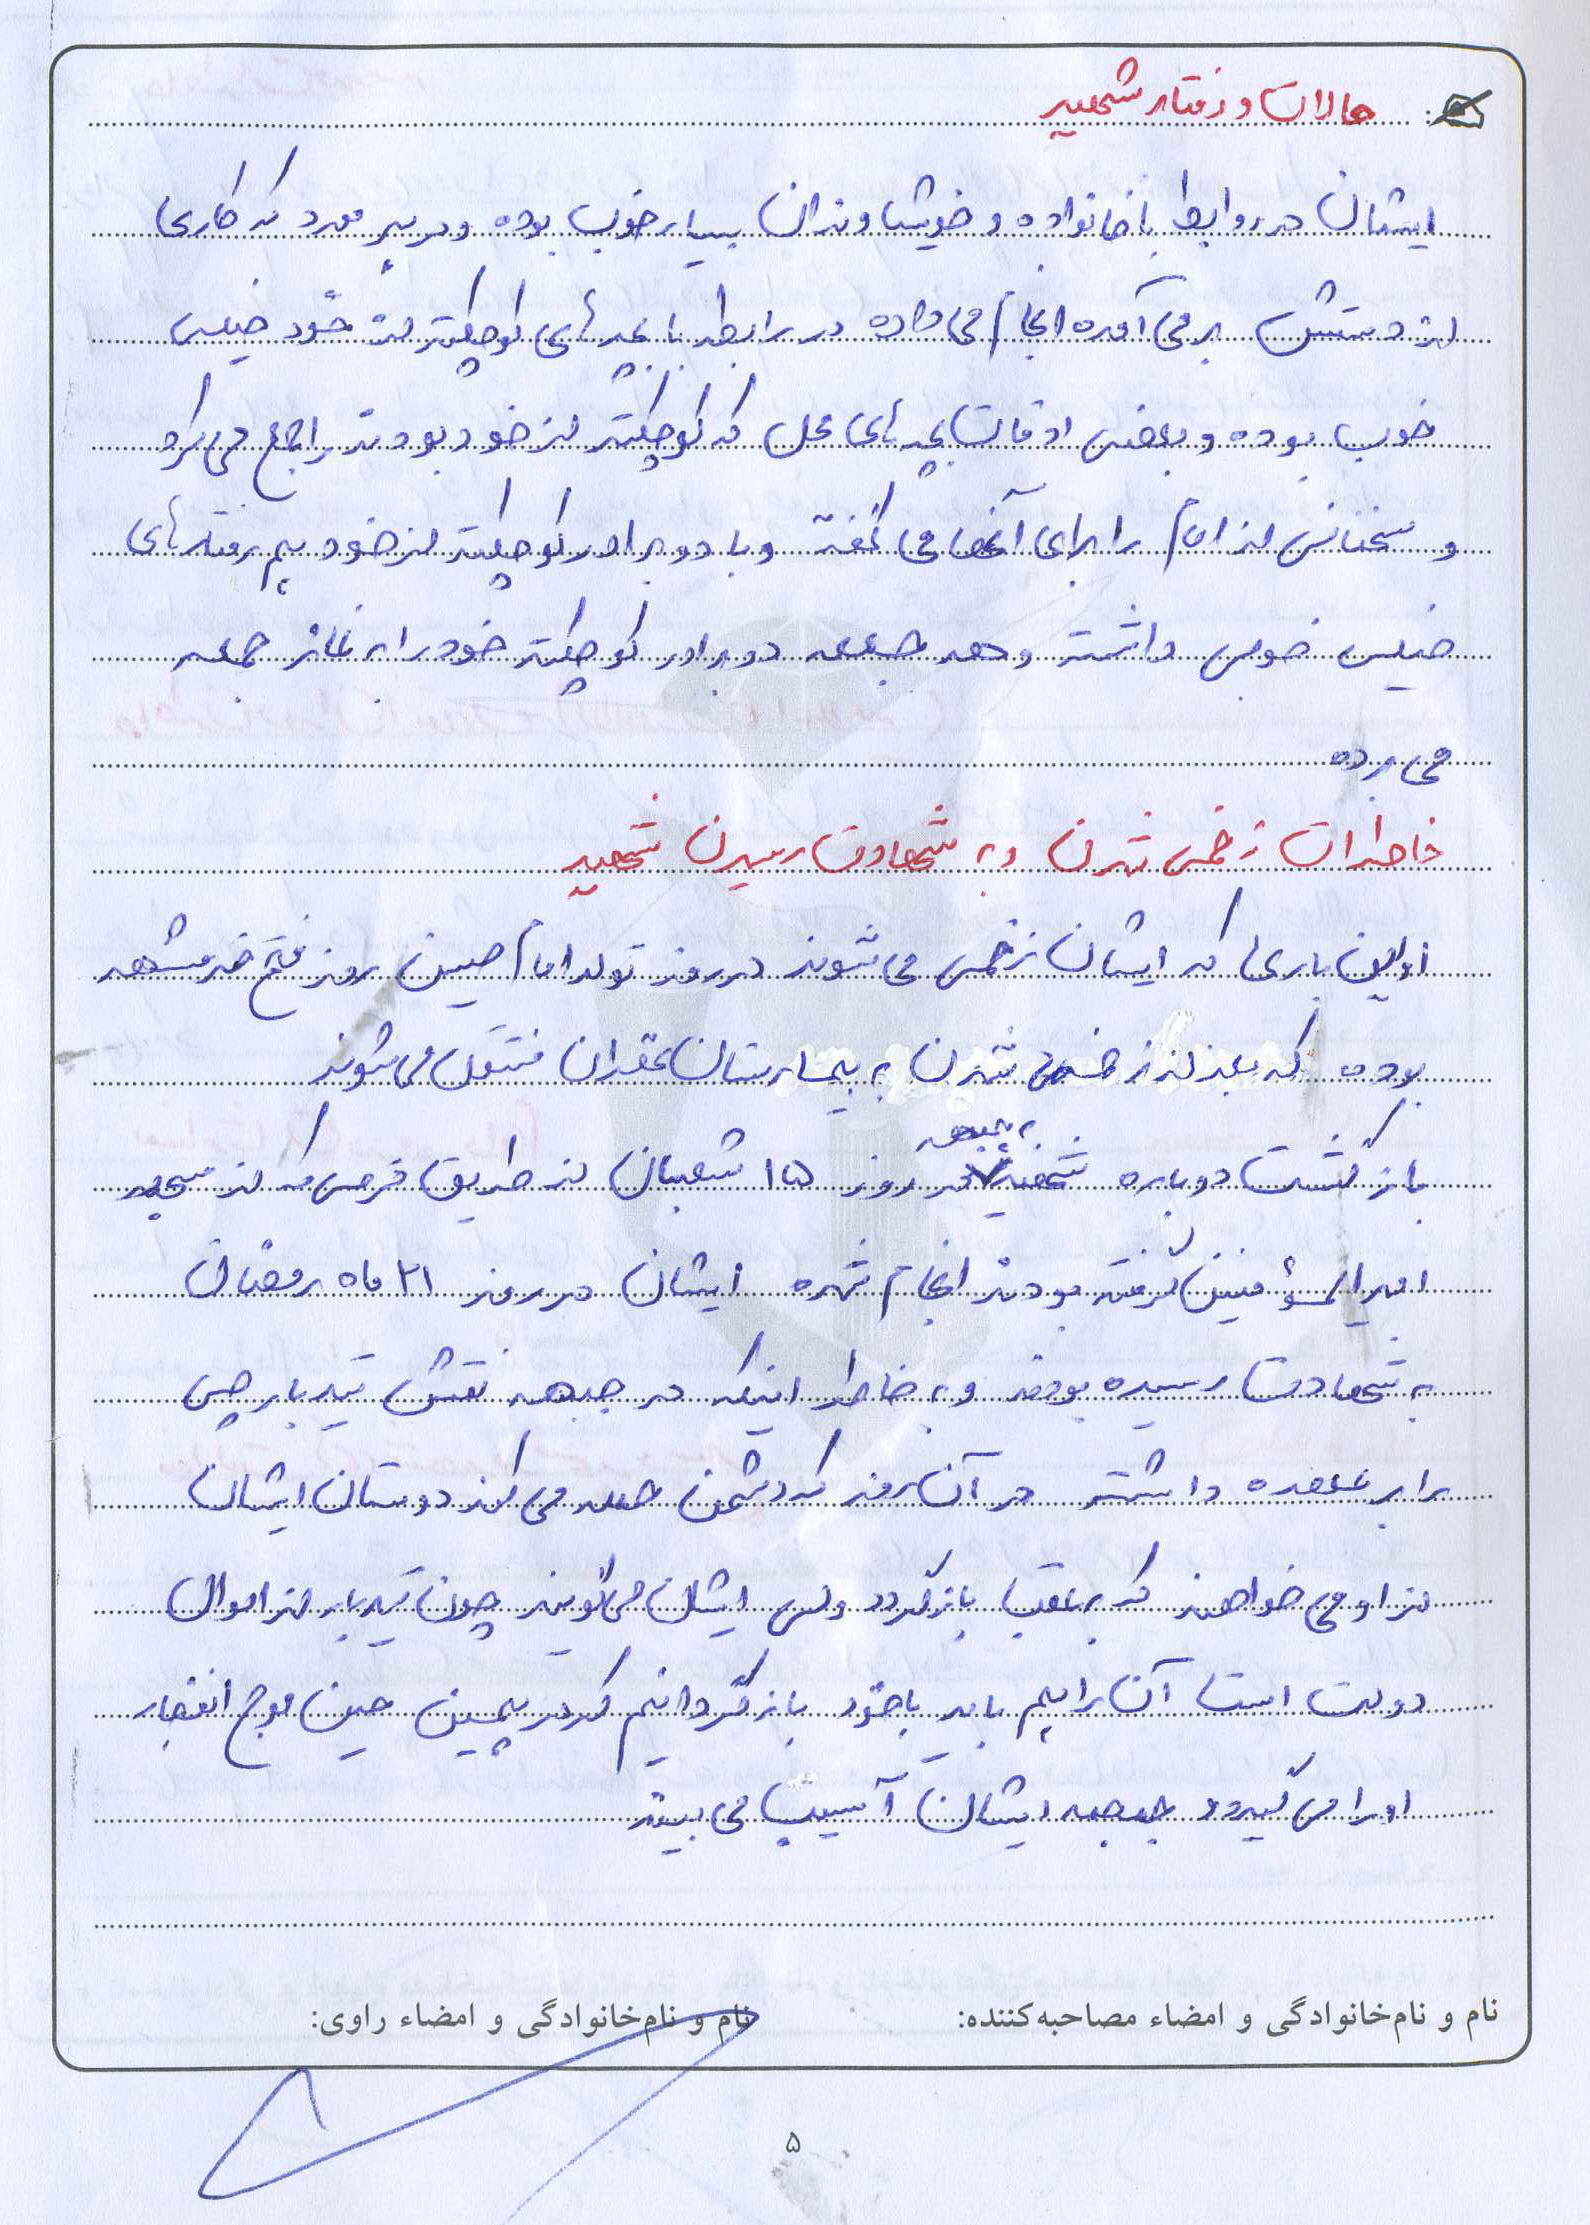 حالات و رفتار شهید
ایشان در روابط با خانواده و خویشاوندان بسیار خوب بوده و در هر مورد که کاری
از دستش بر می آمده انجام می داده در رابطه با بچه های کوچکتر از خود خیلی
خوب بوده و بعضی اوقات بچه های محل که کوچکتر از خود بودند را جمع می کرد
و سخنانی از امام را برای آنها می گفته و با دو برادر کوچکتر از خود هم رفتارهای
خیلی خوبی داشته و همه جمعه دو برادر کوچکتر خود را به نماز جمعه
می برده
خاطرات زخمی شدن و به شهادت رسیدن شهید
اولین باری که ایشان زخمی می شوند در روز تولد امام حسین روز فتح خرمشهر
بوده که بعد از زخمی شدن به بیمارستان تهران منتقل می شوند
بازگشت دوباره شهید به جبهه در روز ۱۵ شعبان از طریق فرمی که از مسجد
امیرالمؤمنین گرفته بودند انجام شده ایشان در روز ۲۱ ماه رمضان
به شهادت رسیده بودند و به خاطر اینکه در جبهه نقش تیربارچی
را بر عهده داشته در آن روز که دشمن حمله می کند دوستان ایشان
از او می خواهند که به عقب بازگردد ولی ایشان می گویند چون تیربار از اموال
دولت است آن را هم باید با خود بازگردانیم که در همین حین موج انفجار
او را می گیرد و جمجمه ایشان آسیب می بیند
نام و نام‌خانوادگی و امضاء مصاحبه‌کننده: نام و نام‌خانوادگی و امضاء راوی:
۵